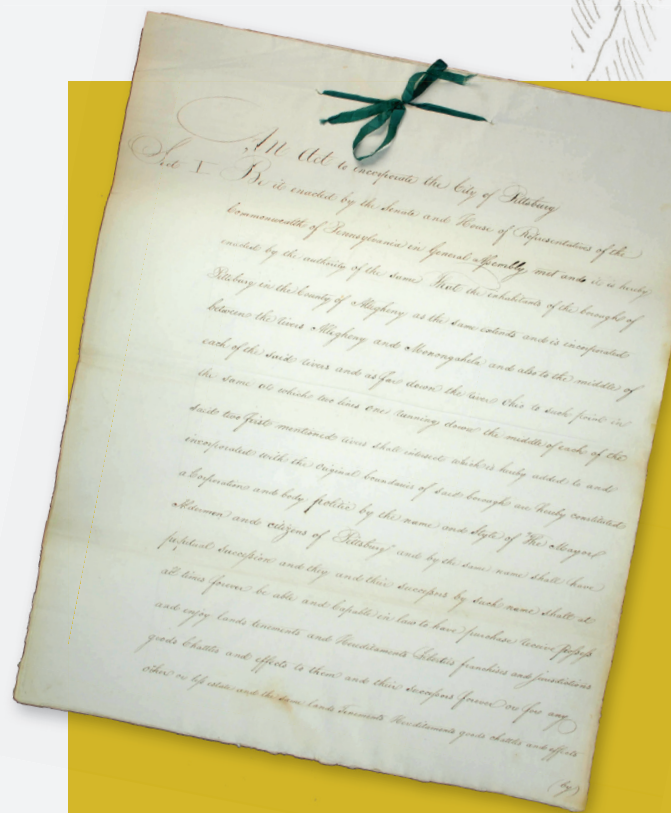 An Act to incorporate the City of Pittsburg
Sect I Be it enacted by the Senate and House of Representatives of the
Commonwealth of Pennsylvania in General Assembly met and it is hereby
enacted by the authority of the same That the inhabitants of the borough of
Pittsburg in the County of Allegheny as the same extends and is incorporated
between the rivers Allegheny and Monongahela and also to the middle of
each of the said rivers and as far down the river Ohio to such point in
the same at which two lines one running down the middle of each of the
said two first mentioned rivers shall intersect which is hereby added to and
incorporated with the original boundaries of said borough are hereby constituted
a Corporation and body politic by the name and Style of The Mayor
Aldermen and citizens of Pittsburg and by the same name shall have
perpetual succession and they and their successors by such name shall at
all times forever be able and capable in law to have purchase receive possess
and enjoy lands tenements and Hereditaments Liberties franchises and jurisdictions
goods Chattles and effects to them and their successors forever or for any
other or less estate and the same lands Tenements Hereditaments goods chattles and effects
(by)